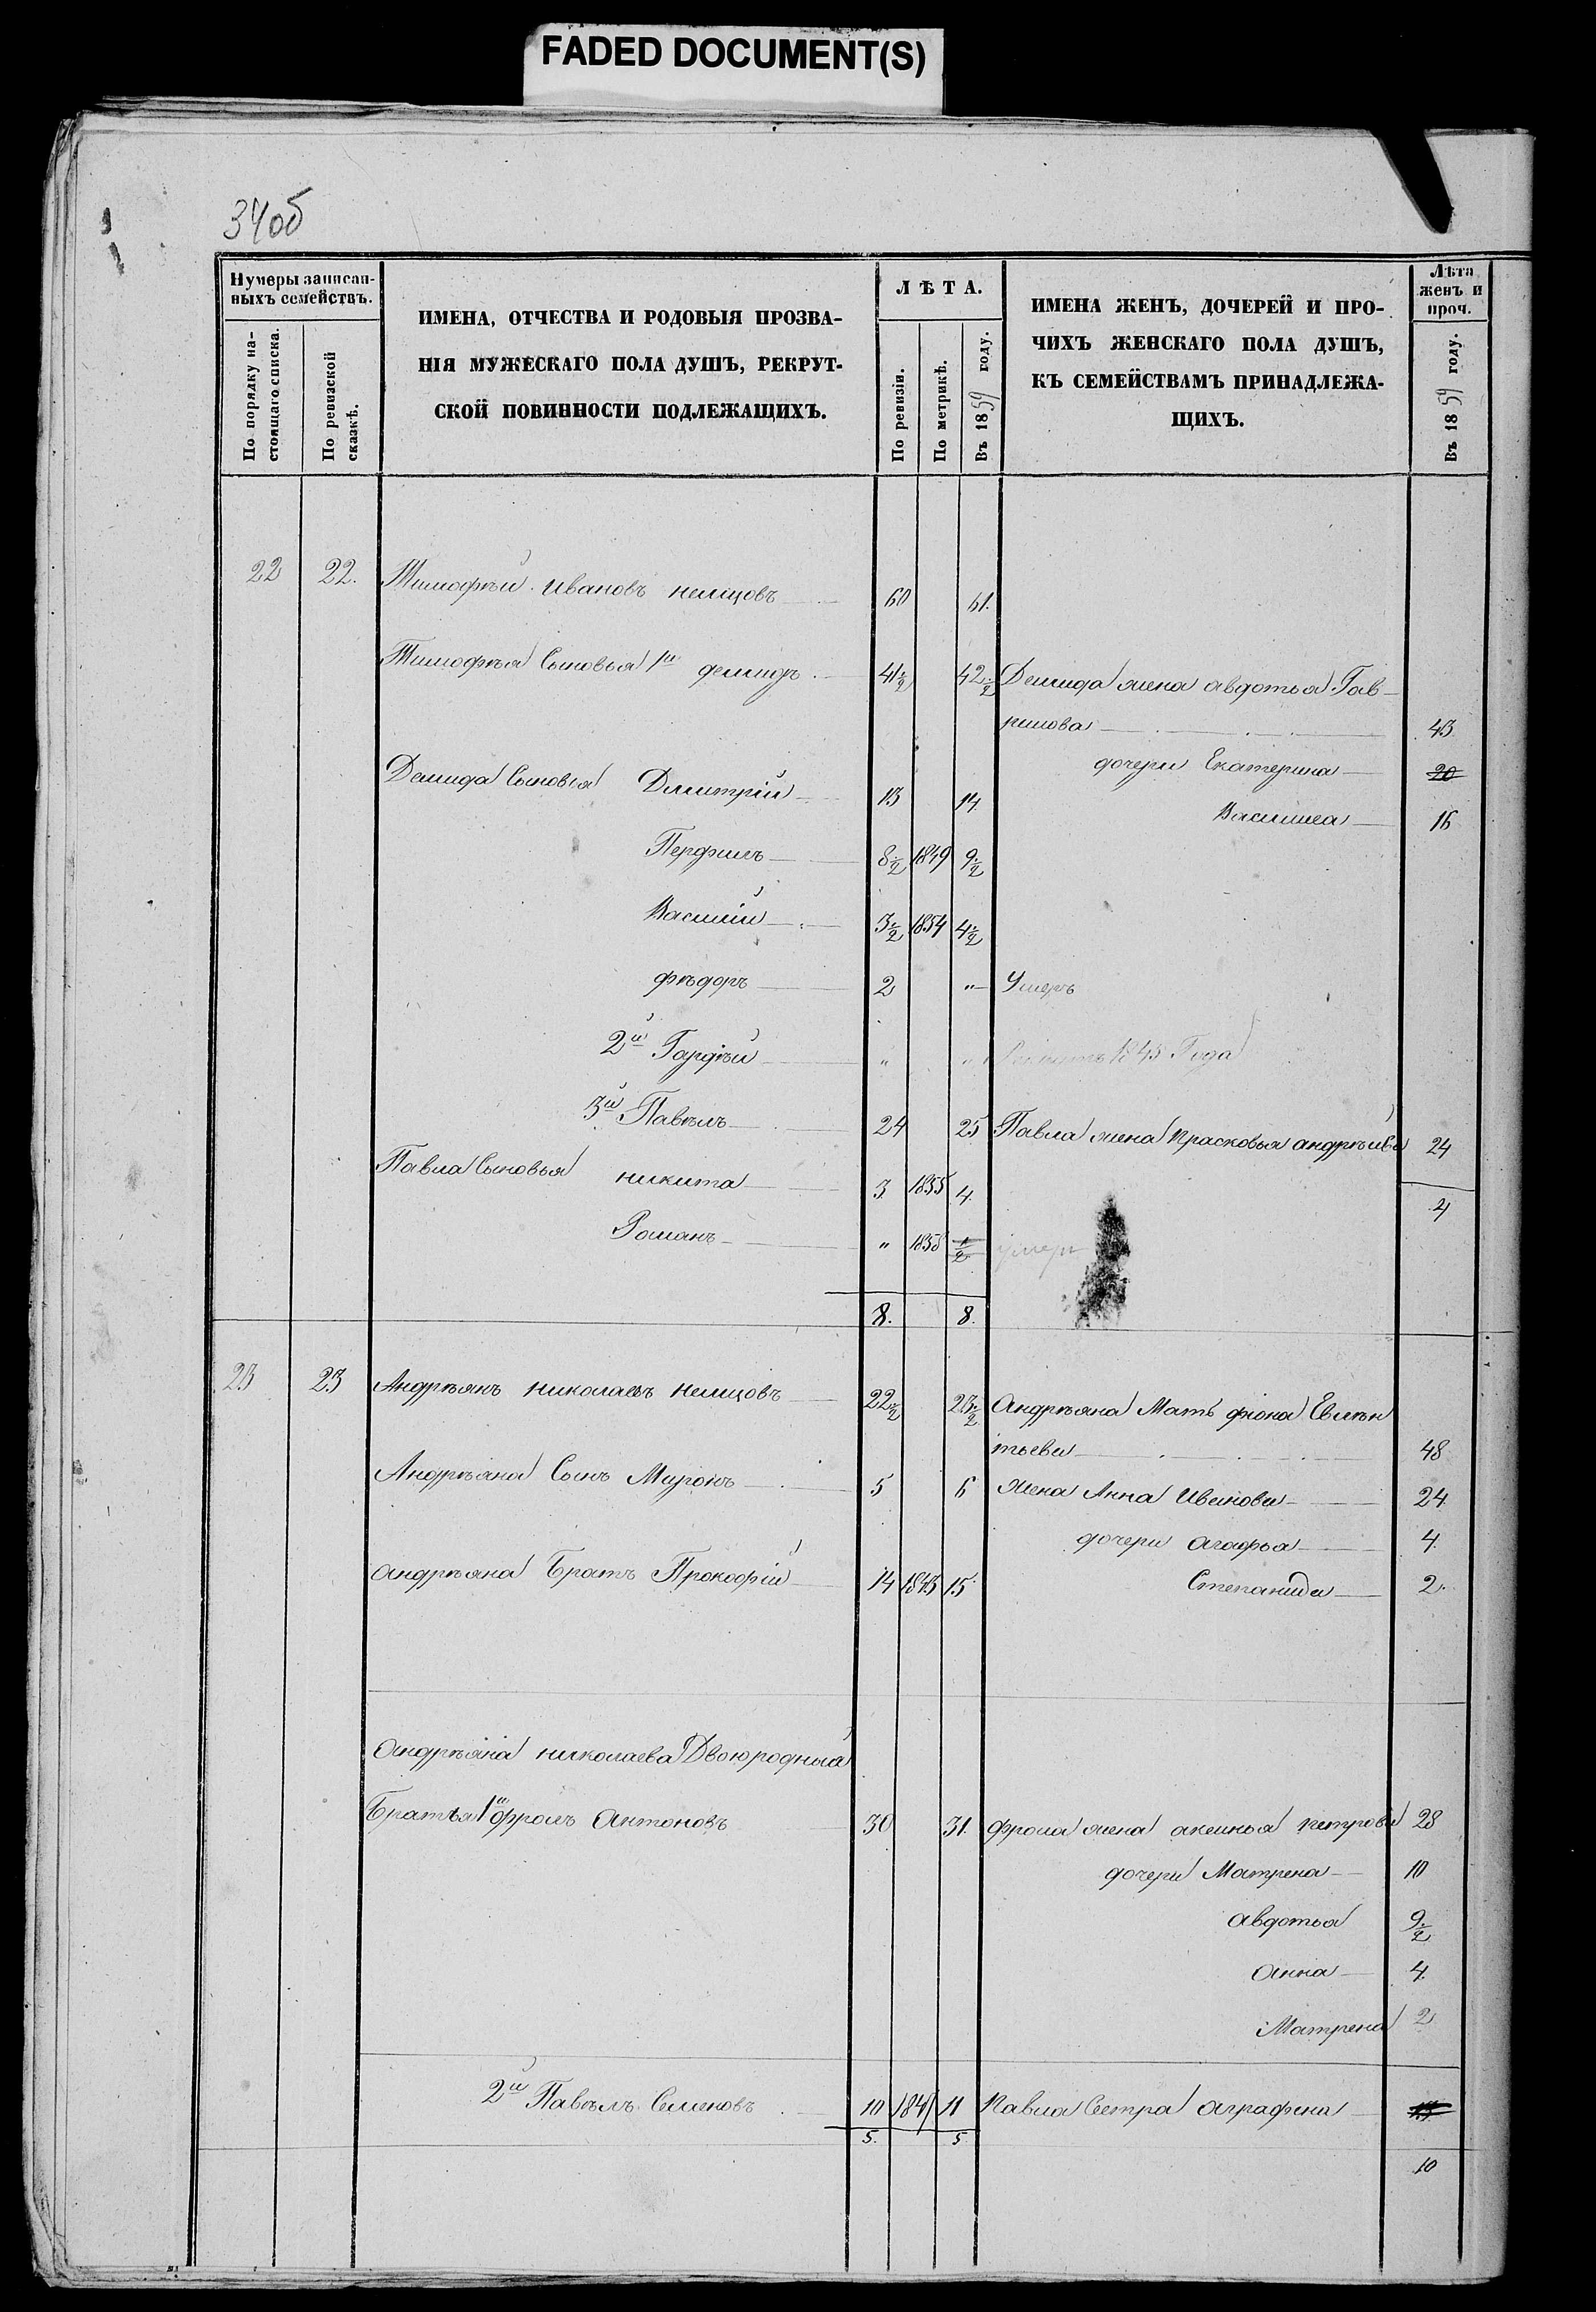 FADED DOCUMENT(S)
34об
Нумеры записан-
ныхъ семействъ.
По порядку на-
стоящаго списка.
По ревизской
сказкѣ.
ИМЕНА, ОТЧЕСТВА И РОДОВЫЯ ПРОЗВА-
НІЯ МУЖЕСКАГО ПОЛА ДУШЪ, РЕКРУТ-
СКОЙ ПОВИННОСТИ ПОДЛЕЖАЩИХЪ.
ЛѢТА.
По ревизіи.
По метрикѣ.
Въ 1859 году.
ИМЕНА ЖЕНЪ, ДОЧЕРЕЙ И ПРО-
ЧИХЪ ЖЕНСКАГО ПОЛА ДУШЪ,
КЪ СЕМЕЙСТВАМЪ ПРИНАДЛЕЖА-
ЩИХЪ.
Лѣта
женъ и
проч.
Въ 1859 году.
22 22. Тимофѣй Ивановъ немцовъ 60 61.
Тимофѣя Сыновья 1й демидъ 41½ 42½ Демида жена авдотья Гав-
рилова 43
дочери Екатерина 20
Демида Сыновья Дмитрій 13 14.
Василиса 16
Перфилъ 8½ 1849 9½
Василій 3½ 1854 4½
фѣдоръ 2 " Умеръ
2й Гордѣй " " Рекрутъ 1845 Года
3й Павѣлъ 24 25 Павла жена прасковья андрѣива 24
Павла Сыновья никита 3 1855 4.
4
Романъ " 1858 ½ умеръ
8. 8.
23 23 Андрѣянъ николаевъ немцовъ 22½ 23½ Андрѣяна Мать фіона Евлѣн
тьева 48
Андрѣяна Сынъ Миронъ 5 6 жена Анна Иванова 24
дочери агафья 4.
андрѣяна Братъ Прокофій 14 1843 15
Степанида 2.
андрѣяна николаева Двоюродныя
Братья 1й фролъ Антоновъ 30 31. фрола жена аксинья петрова 28
дочери Матрена 10
авдотья 9½
анна 4.
Матрена 2
2й Павѣлъ Семеновъ 10 1847 11 Павла Сестра аграфена
5. 5
10